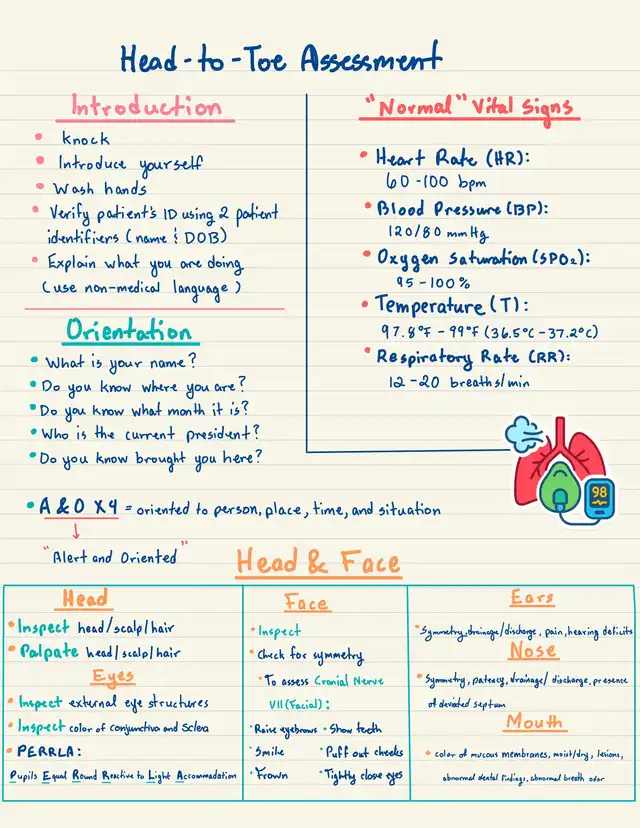 Head-to-Toe Assessment
Introduction
• Knock
• Introduce yourself
• Wash hands
• Verify patient's ID using 2 patient
identifiers (name & DOB)
• Explain what you are doing
(use non-medical language)
Orientation
• What is your name?
• Do you know where you are?
• Do you know what month it is?
• Who is the current president?
• Do you know brought you here?
• A & O X4 = oriented to person, place, time, and situation
"Alert and Oriented"
"Normal" Vital Signs
• Heart Rate (HR):
60-100 bpm
• Blood Pressure (BP):
120/80 mmHg
• Oxygen Saturation (SPO₂):
95-100%
• Temperature (T):
97.8°F - 99°F (36.5°C-37.2°C)
• Respiratory Rate (RR):
12-20 breaths/min
98
Head & Face
Head
• Inspect head/scalp/hair
• Palpate head/scalp/hair
Eyes
• Inspect external eye structures
• Inspect color of conjunctiva and Sclera
• PERRLA:
Pupils Equal Round Reactive to Light Accommodation
Face
• Inspect
• Check for symmetry
• To assess Cranial Nerve
VII (Facial):
• Raise eyebrows • Show teeth
• Smile • Puff out cheeks
• Frown • Tightly close eyes
Ears
• Symmetry, drainage/discharge, pain, hearing deficits
Nose
• Symmetry, patency, drainage/discharge, presence
of deviated septum
Mouth
• color of mucous membranes, moist/dry, lesions,
abnormal dental findings, abnormal breath odor